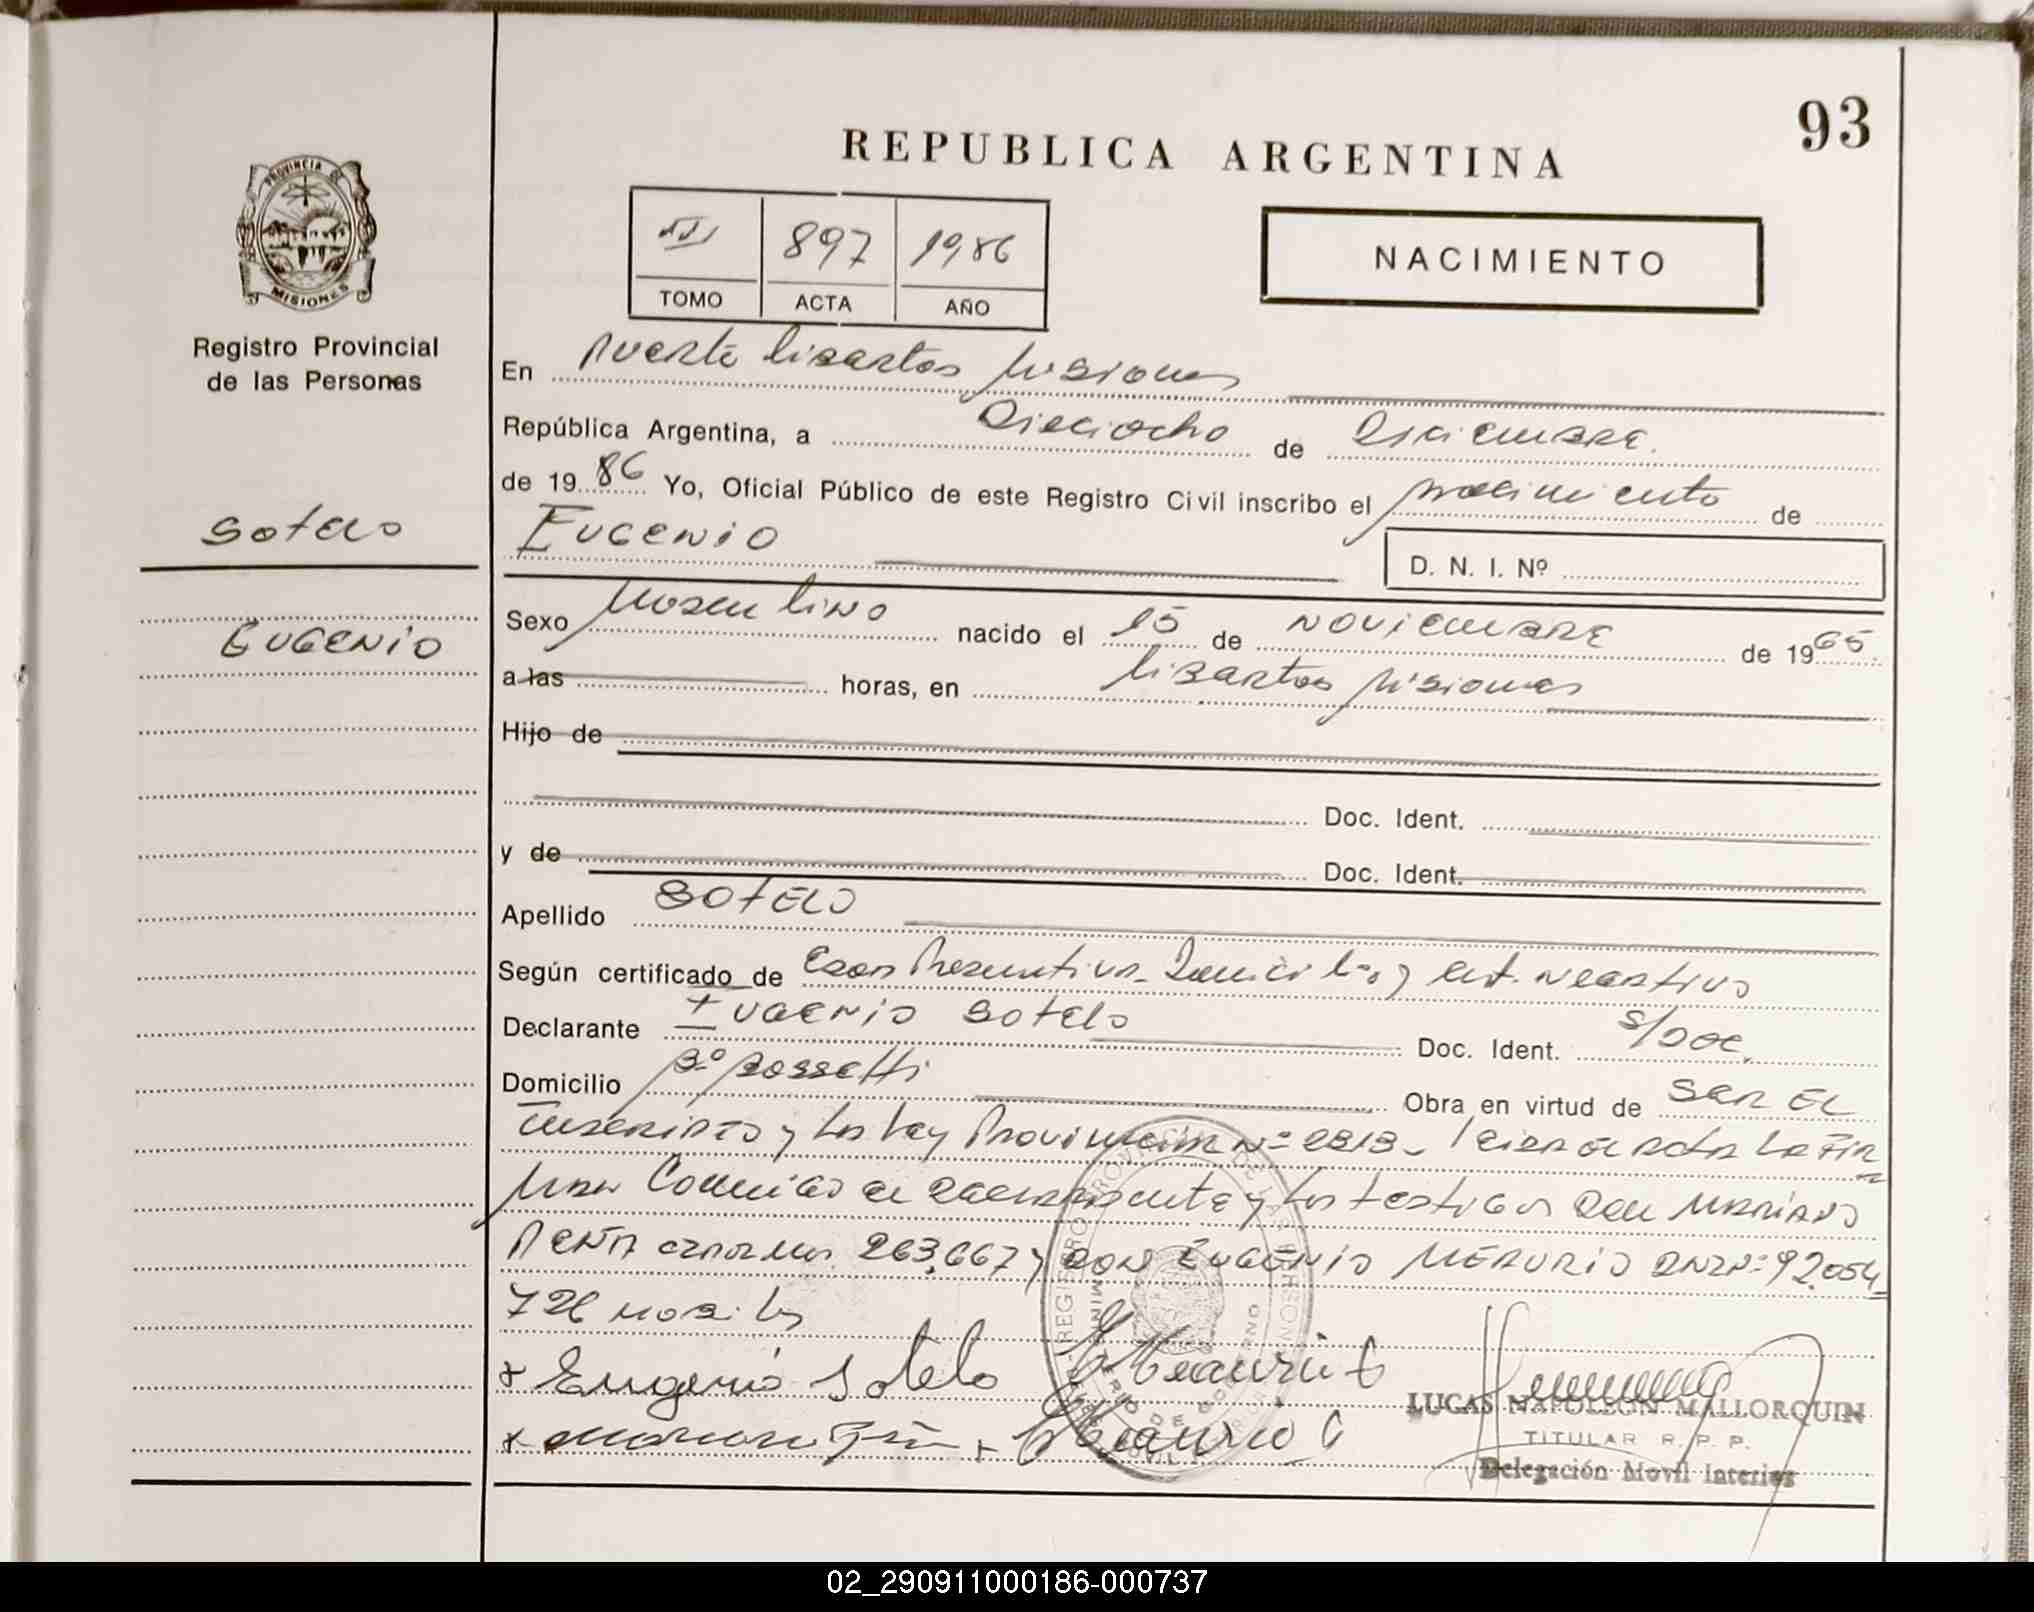 93
REPUBLICA ARGENTINA
PROVINCIA DE
MISIONES
Registro Provincial
de las Personas
III 897 1986
TOMO ACTA AÑO
NACIMIENTO
En Puerto Libertad Misiones
República Argentina, a Dieciocho de Diciembre.
de 19 86 Yo, Oficial Público de este Registro Civil inscribo el nacimiento de
Sotelo
EUGENIO
D. N. I. Nº
Sexo Masculino nacido el 15 de NOVIEMBRE de 19 65
EUGENIO
a las horas, en Libertad Misiones
Hijo de
Doc. Ident.
y de Doc. Ident.
Apellido SOTELO
Según certificado de Edad Presuntiva - Domicilio y Cert. Negativo
Declarante EUGENIO SOTELO Doc. Ident. S/Doc.
Domicilio Bº Rossetti Obra en virtud de SER EL
INSCRIPTO y La Ley Provincial Nº 2313 - Leida el Acta La Fir
man Conmigo el declarante y los testigos Don MARIANO
PEÑA 263.667 y DON EUGENIO Nº 92.054
726
x Eugenio Sotelo
LUCAS NAPOLEON MALLORQUIN
TITULAR R. P. P.
Delegación Movil Interior
02_290911000186-000737